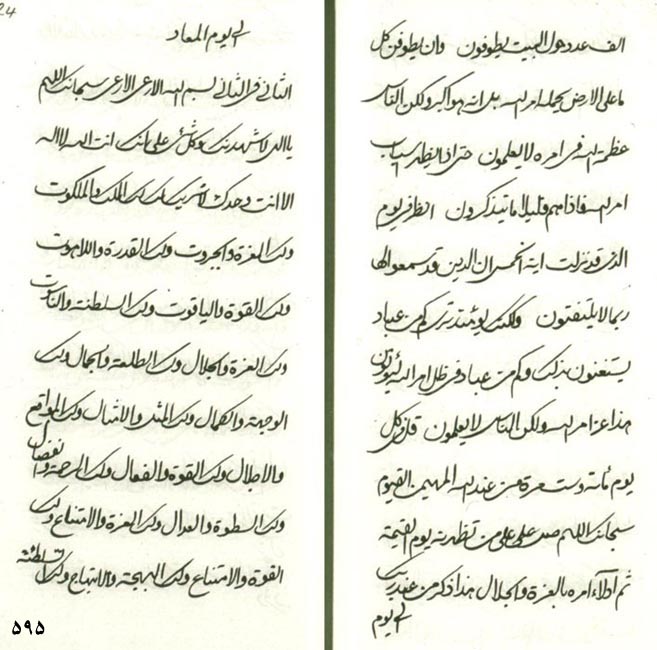 الف عدد حول البيت يطوفون وان يطوفن كل
ما على الارض يحمله امر الله بل انه هو اكبر ولكن الناس
عظمة الله فى امره لا يعلمون حتى اذا يظهر اسباب
امر الله فاذا هم قليلا ما يتذكرون انظر فى يوم
الذى قد نزلت اية الخمس ان الذين قد سمعوا لها
ربما لا يلتفتون ولكنك يومئذ ترى كم من عباد
يستغنون بذلك وكم من عباد فى ظل امر الله
هذا عز امر الله ولكن الناس لا يعلمون قل فى كل
يوم مائة وست مرة من عند الله المهيمن القيوم
سبحانك اللهم صل على على من تظهرنه يوم القيمة
ثم ادلآء امره بالعزة والجلال هذا ذكر من
الى يوم
24
الى يوم المعاد
الثانى فى الثانى بسم الله سبحانك اللهم
يا الهى لاشهدنك وكل شئ على انك انت الله لا اله
الا انت وحدك لا شريك لك لك الملك والملكوت
ولك العزة والجبروت ولك القدرة واللاهوت
ولك القوة والياقوت ولك السلطنة والناسوت
ولك العزة والجلال ولك الطلعة والجمال ولك
الوجهة والكمال ولك المثل والامثال ولك المواقع
والاجلال ولك القوة والفعال ولك الرحمة والفضال
ولك السطوة والعدال ولك العزة والامتناع ولك
القوة والامتناع ولك البهجة والابتهاج ولك السلطنة
۵۹۵